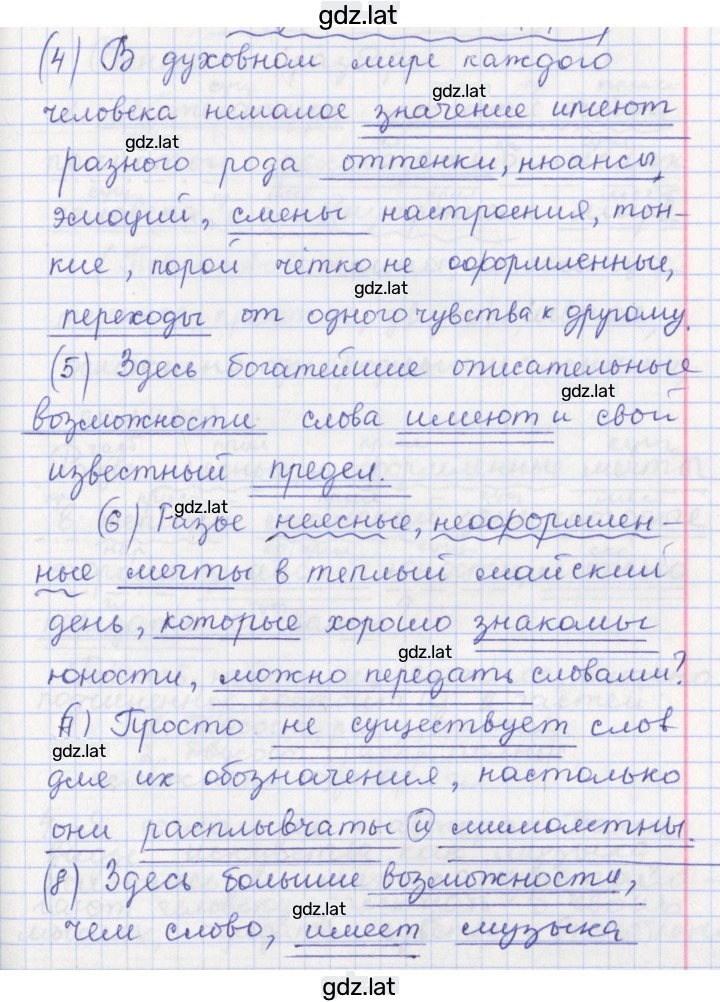 gdz.lat
(4) В духовном мире каждого
gdz.lat
человека немалое значение имеют
gdz.lat
разного рода оттенки, нюансы,
эмоций, смены настроения, тон-
кие, порой чётко не оформленные,
gdz.lat
переходы от одного чувства к другому.
(5) Здесь богатейшие описательные
gdz.lat
возможности слова имеют и свой
известный предел.
gdz.lat
(6) Разве неясные, неоформлен-
ные мечты в теплый майский
день, которые хорошо знакомы
gdz.lat
юности, можно передать словами?
7) Просто не существует слов
gdz.lat
для их обозначения, настолько
они расплывчаты и мимолетны.
(8) Здесь большие возможности,
gdz.lat
чем слово, имеет музыка
gdz.lat